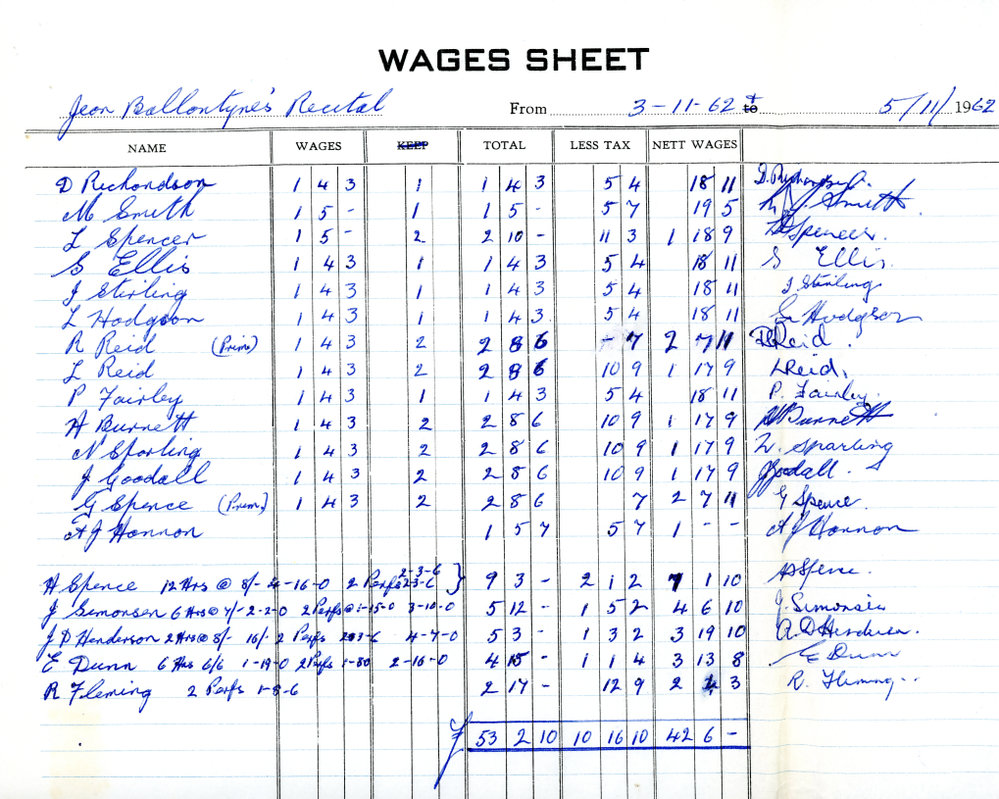 WAGES SHEET
Jean Ballantyne's Recital From 3-11-62 & to 5/11/ 1962
NAME WAGES KEEP TOTAL LESS TAX NETT WAGES
D Richardson 1 4 3 1 1 4 3 5 4 18 11 D. Richardson
M Smith 1 5 - 1 1 5 - 5 7 19 5 M Smith
L Spencer 1 5 - 2 2 10 - 11 3 1 18 9 L Spencer.
S Ellis 1 4 3 1 1 4 3 5 4 18 11 S Ellis.
J Stirling 1 4 3 1 1 4 3 5 4 18 11 J Stirling
L Hodgson 1 4 3 1 1 4 3 5 4 18 11 L Hodgson
R Reid (Prem) 1 4 3 2 2 8 6 - 7 2 7 11 Reid.
L Reid 1 4 3 2 2 8 6 10 9 1 17 9 L Reid.
P Fairley 1 4 3 1 1 4 3 5 4 18 11 P. Fairley.
A Burnett 1 4 3 2 2 8 6 10 9 1 17 9 A Burnett
N Sparling 1 4 3 2 2 8 6 10 9 1 17 9 N. Sparling
J Goodall 1 4 3 2 2 8 6 10 9 1 17 9 J Goodall.
G Spence (Prem) 1 4 3 2 2 8 6 7 2 7 11 G Spence
A J Hannon 1 5 7 5 7 1 - - A J Hannon
2-3-6
H Spence 12 Hrs @ 8/- 4-16-0 2 Perfs 2-3-6 } 9 3 - 2 1 2 7 1 10 H Spence.
J Simonsen 6 Hrs @ 7/- 2-2-0 2 Perfs @ 1-15-0 3-10-0 5 12 - 1 5 2 4 6 10 J. Simonsen
J D Henderson 2 Hrs @ 8/- 16/- 2 Perfs 2-3-6 4-7-0 5 3 - 1 3 2 3 19 10 Henderson.
E Dunn 6 Hrs 6/6 1-19-0 2 Perfs 1-8-0 2-16-0 4 15 - 1 1 4 3 13 8 E Dunn
R Fleming 2 Perfs 1-8-6 2 17 - 12 9 2 4 3 R. Fleming
£ 53 2 10 10 16 10 42 6 -